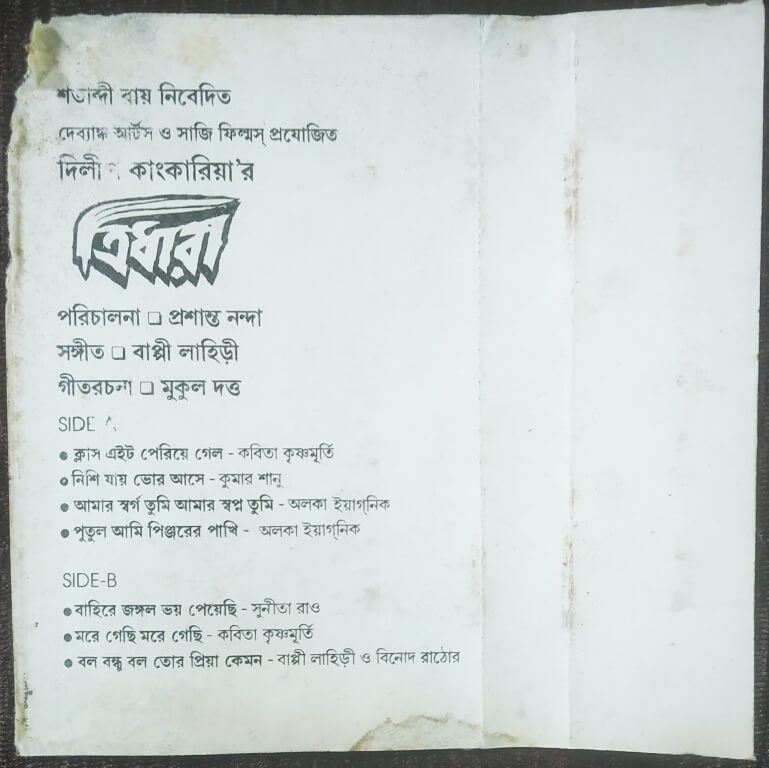 শতাব্দী রায় নিবেদিত
দেব্যান্ধ আর্টস ও সাজি ফিল্মস্ প্রযোজিত
কাংকারিয়া'র
ত্রিধারা
পরিচালনা □ প্রশান্ত নন্দা
সঙ্গীত □ বাপ্পী লাহিড়ী
গীতরচনা □ মুকুল দত্ত
SIDE A
• ক্লাস এইট পেরিয়ে গেল - কবিতা কৃষ্ণমূর্তি
• নিশি যায় ভোর আসে - কুমার শানু
• আমার স্বর্গ তুমি আমার স্বপ্ন তুমি - অলকা ইয়াগ্‌নিক
• পুতুল আমি পিঞ্জরের পাখি - অলকা ইয়াগ্‌নিক
SIDE-B
• বাহিরে জঙ্গল ভয় পেয়েছি - সুনীতা রাও
• মরে গেছি মরে গেছি - কবিতা কৃষ্ণমূর্তি
• বল বন্ধু বল তোর প্রিয়া কেমন - বাপ্পী লাহিড়ী ও বিনোদ রাঠোর